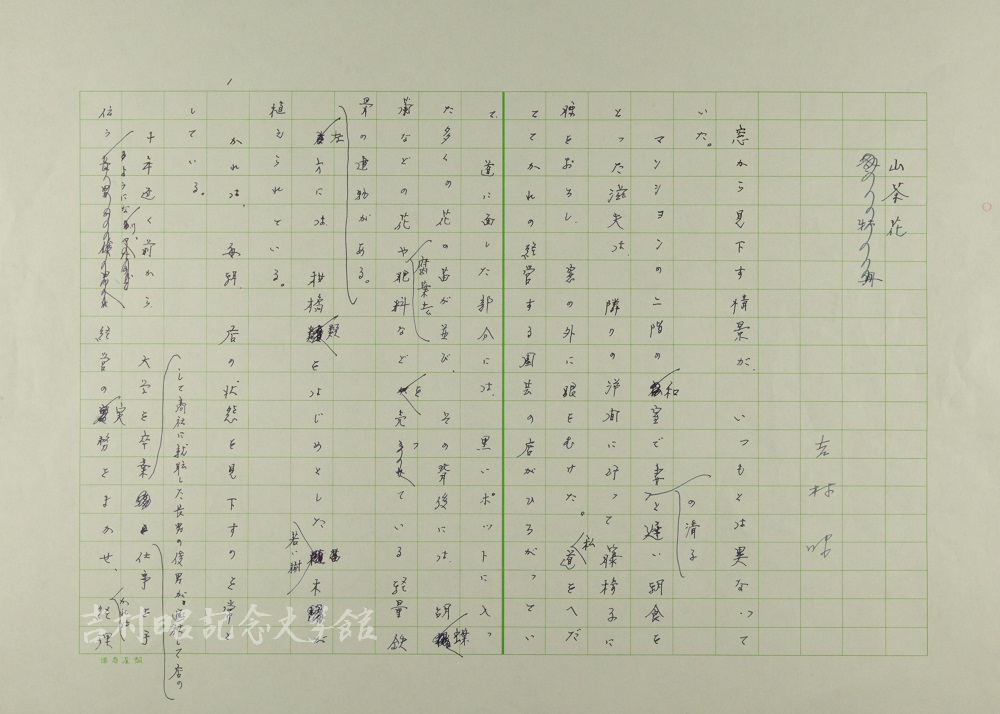 山茶花
吉村昭
窓から見下す情景が、いつもとは異なって
いた。
マンションの二階の和室で妻の清子と遅い朝食を
とった滋夫は、隣りの洋間に行って籐椅子に
腰をおろし、窓の外に眼をむけた。私道をへだ
ててかれの経営する園芸の店がひろがってい
て、道に面した部分には、黒いポットに入っ
た多くの花の苗が並び、その背後には、胡蝶
蘭などの花や肥料、腐葉土などを売っている軽量鉄
骨の建物がある。
左方には、柑橘類をはじめとした若い樹木が
植えられている。
かれは、毎朝、店の状態を見下すのを常と
している。
十年近く前から大学を卒業して商社に就職した長男の俊男が退社して店の仕事を手
伝うようになり、経営の実務をまかせ、
吉村昭記念文学館